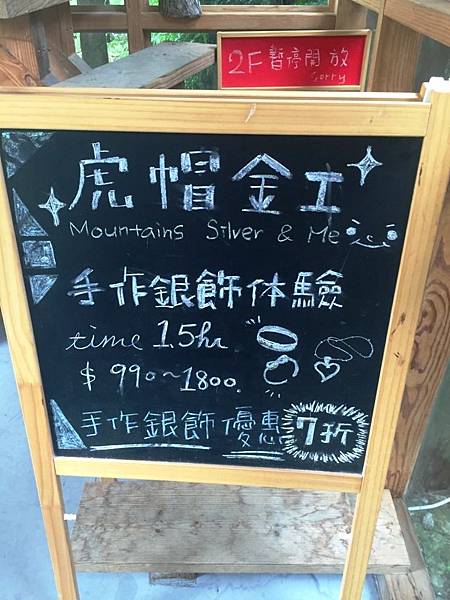 2F暫停開放
sorry
虎帽金工
Mountains Silver & Me
手作銀飾体驗
time 1.5hr
$ 990~1800.
手作銀飾優惠 7折